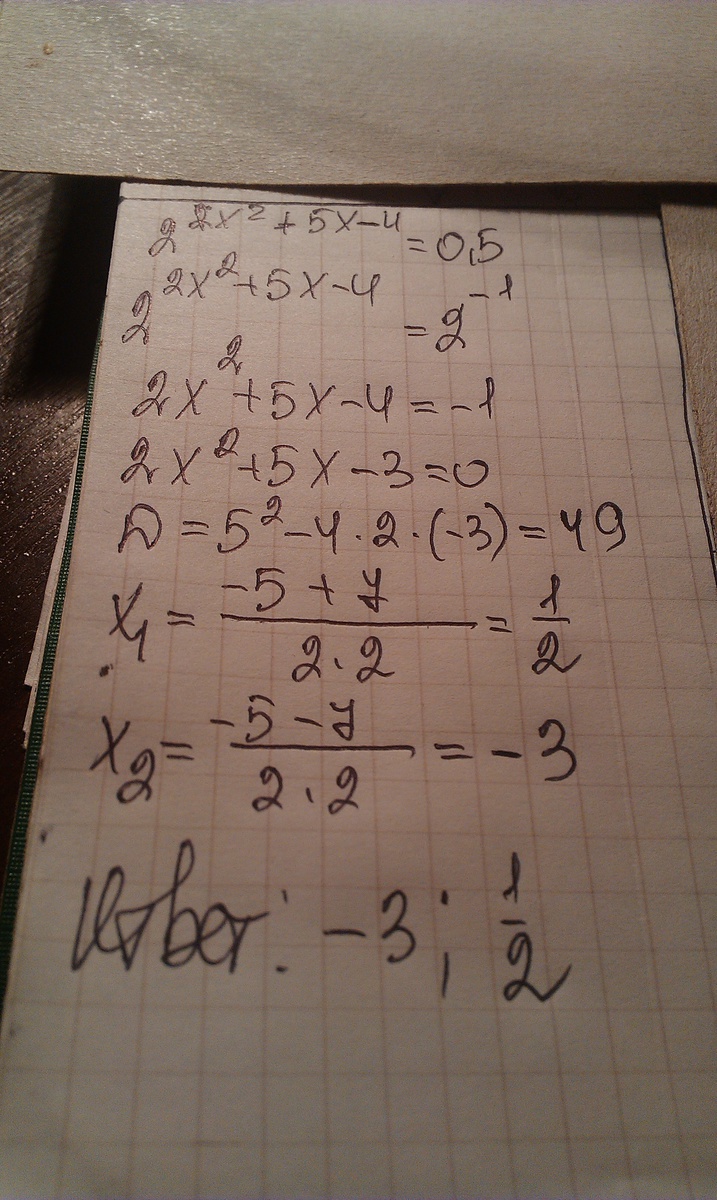 2^(2x² + 5x - 4) = 0,5
2^(2x² + 5x - 4) = 2^(-1)
2x² + 5x - 4 = -1
2x² + 5x - 3 = 0
D = 5² - 4 · 2 · (-3) = 49
x₁ = (-5 + 7)/(2 · 2) = 1/2
x₂ = (-5 - 7)/(2 · 2) = -3
Ответ: -3; 1/2